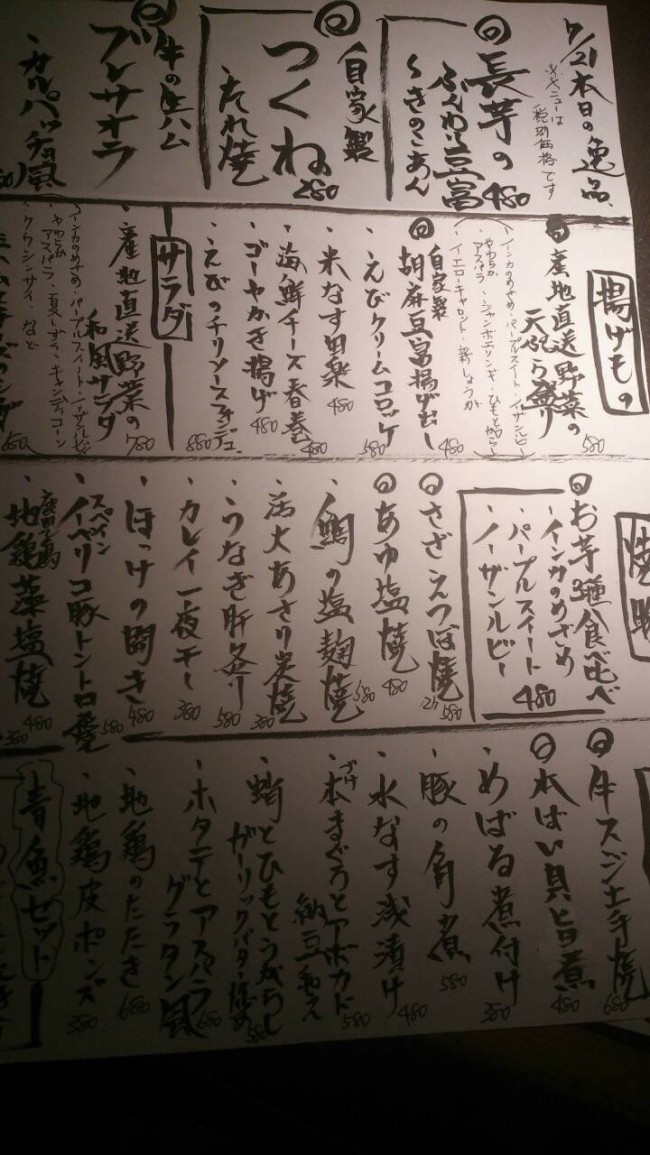 7/21本日の逸品
※メニューは
税別価格です
長芋の
ふんわり豆富
くさのこあん
480
自家製
つくね
たれ焼
280
牛の生ハム
ブレサオラ
カルパッチョ風
揚げもの
産地直送野菜の
天ぷら盛り
580
インカのめざめ・パープルスイート・ノーザンルビー
やわらかアスパラ・ジャンボエリンギ・ひもとうがらし
イエローキャロット・新しょうが
自家製
胡麻豆富揚げ出し
480
・えびクリームコロッケ
580
・米なす田楽
480
・海鮮チーズ春巻
480
・ゴーヤかき揚げ
480
・えびのチリソースフォンデュ
880
サラダ
・産地直送野菜の
和風サラダ
780
インカのめざめ・パープルスイート・ノーザンルビー
やわらかアスパラ・夏しずく・キャンディコーン
クウシンサイ・など
680
お芋3種食べ比べ
・インカのめざめ
・パープルスイート
・ノーザンルビー
480
さざえつぼ焼
2ヶ 580
あゆ塩焼
480
・鯛の塩麹焼
580
・活大あさり炭焼
380
・うなぎ肝串
580
・カレイ一夜干し
380
・ほっけの開き
480
・スペイン
イベリコ豚トントロ炙
580
・地鶏藻塩焼
480
380
牛スジ土手焼
680
本ばい貝旨煮
480
・めばる煮付け
380
・豚の角煮
580
・水なす浅漬け
480
・本まぐろとアボカド
づけ
納豆和え
580
・蛸とひもとうがらし
ガーリックバター炒め
580
・ホタテとアスパラ
グラタン風
680
・地鶏のたたき
680
・地鶏皮ポンズ
380
青魚ゼット